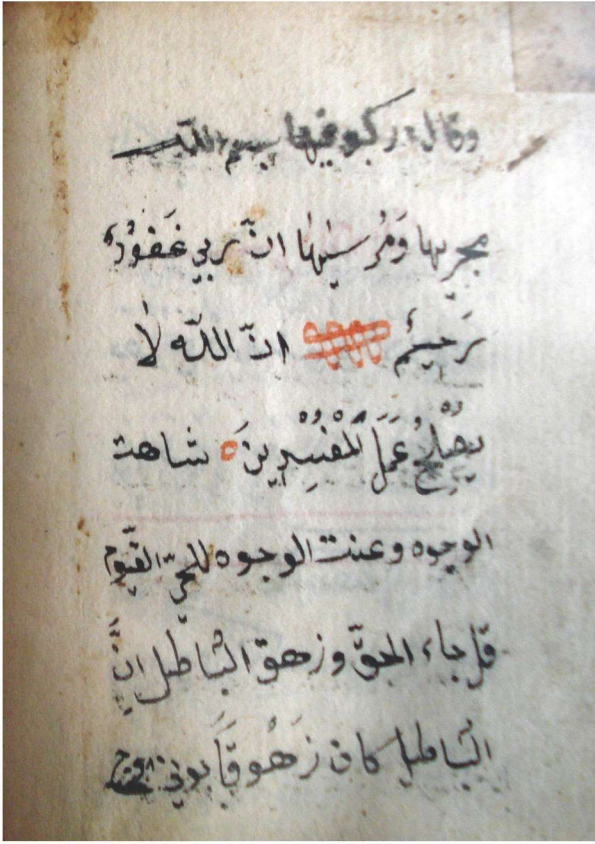 وقال اركبو فيها بسم الله
مجريها وَمُرسٰيهٰا انّ ربي غَفورٌ
رَحيمٌ انّ اللّه لٰا
يُصْلِحُ عَمَلَ الْمُفْسِدِينَ ه شاهت
الوجوه وعنت الوجوه للحيّ القيّوم
قل جاء الحقّ وزهق الباطل انَّ
الباطل كان زَهُوقاً